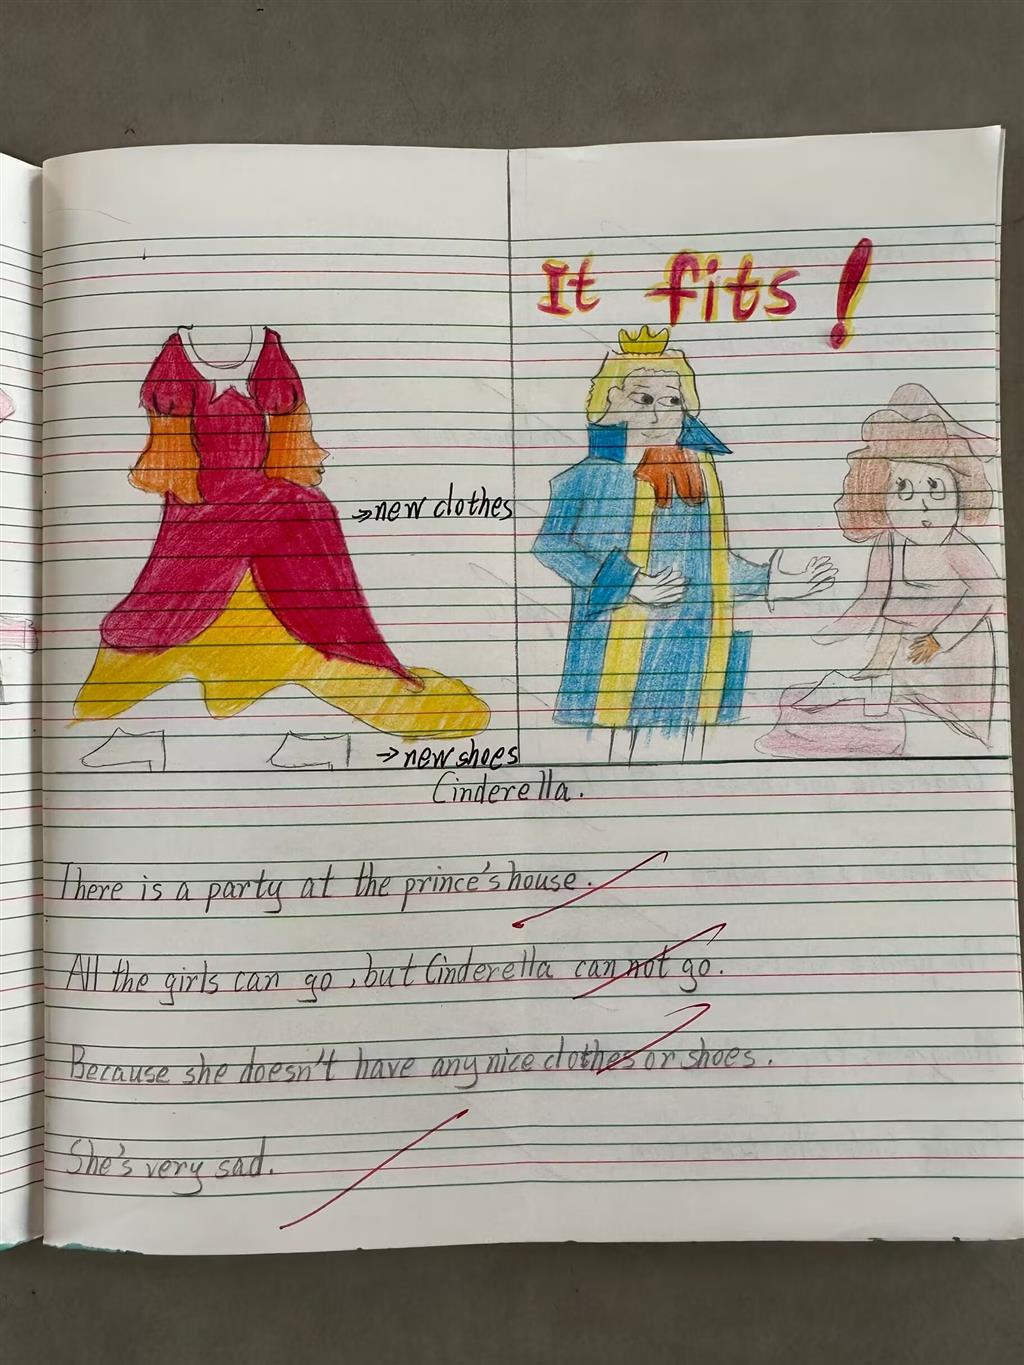 It fits!
new clothes
new shoes
Cinderella.
There is a party at the prince's house.
All the girls can go, but Cinderella can not go.
Because she doesn't have any nice clothes or shoes.
She's very sad.